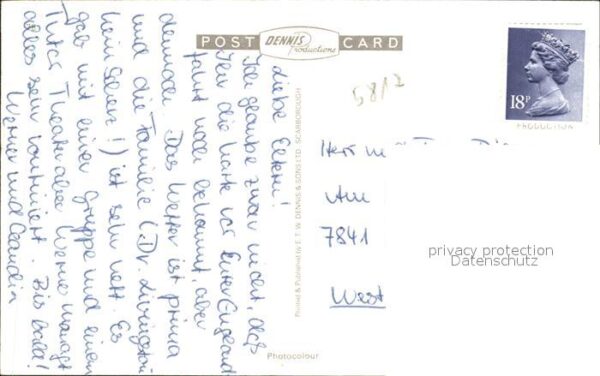 POST DENNIS Productions CARD
58/2
18P
Liebe Eltern!
Ich glaube zwar nicht, daß
Ihr die Karte vor Eurer England
fahrt noch bekommt, aber
dennoch. Das Wetter ist prima
und die Familie (Dr. Livingston
kein Scherz!) ist sehr nett. Es
gab mit einer Gruppe und einem
Theater aber Werner managt
alles sehr routiniert. Bis bald!
Werner und Claudia
Printed & Published by E. T. W. DENNIS & SONS LTD., SCARBOROUGH
Photocolour
Herrn
Am
7841
West
privacy protection
Datenschutz